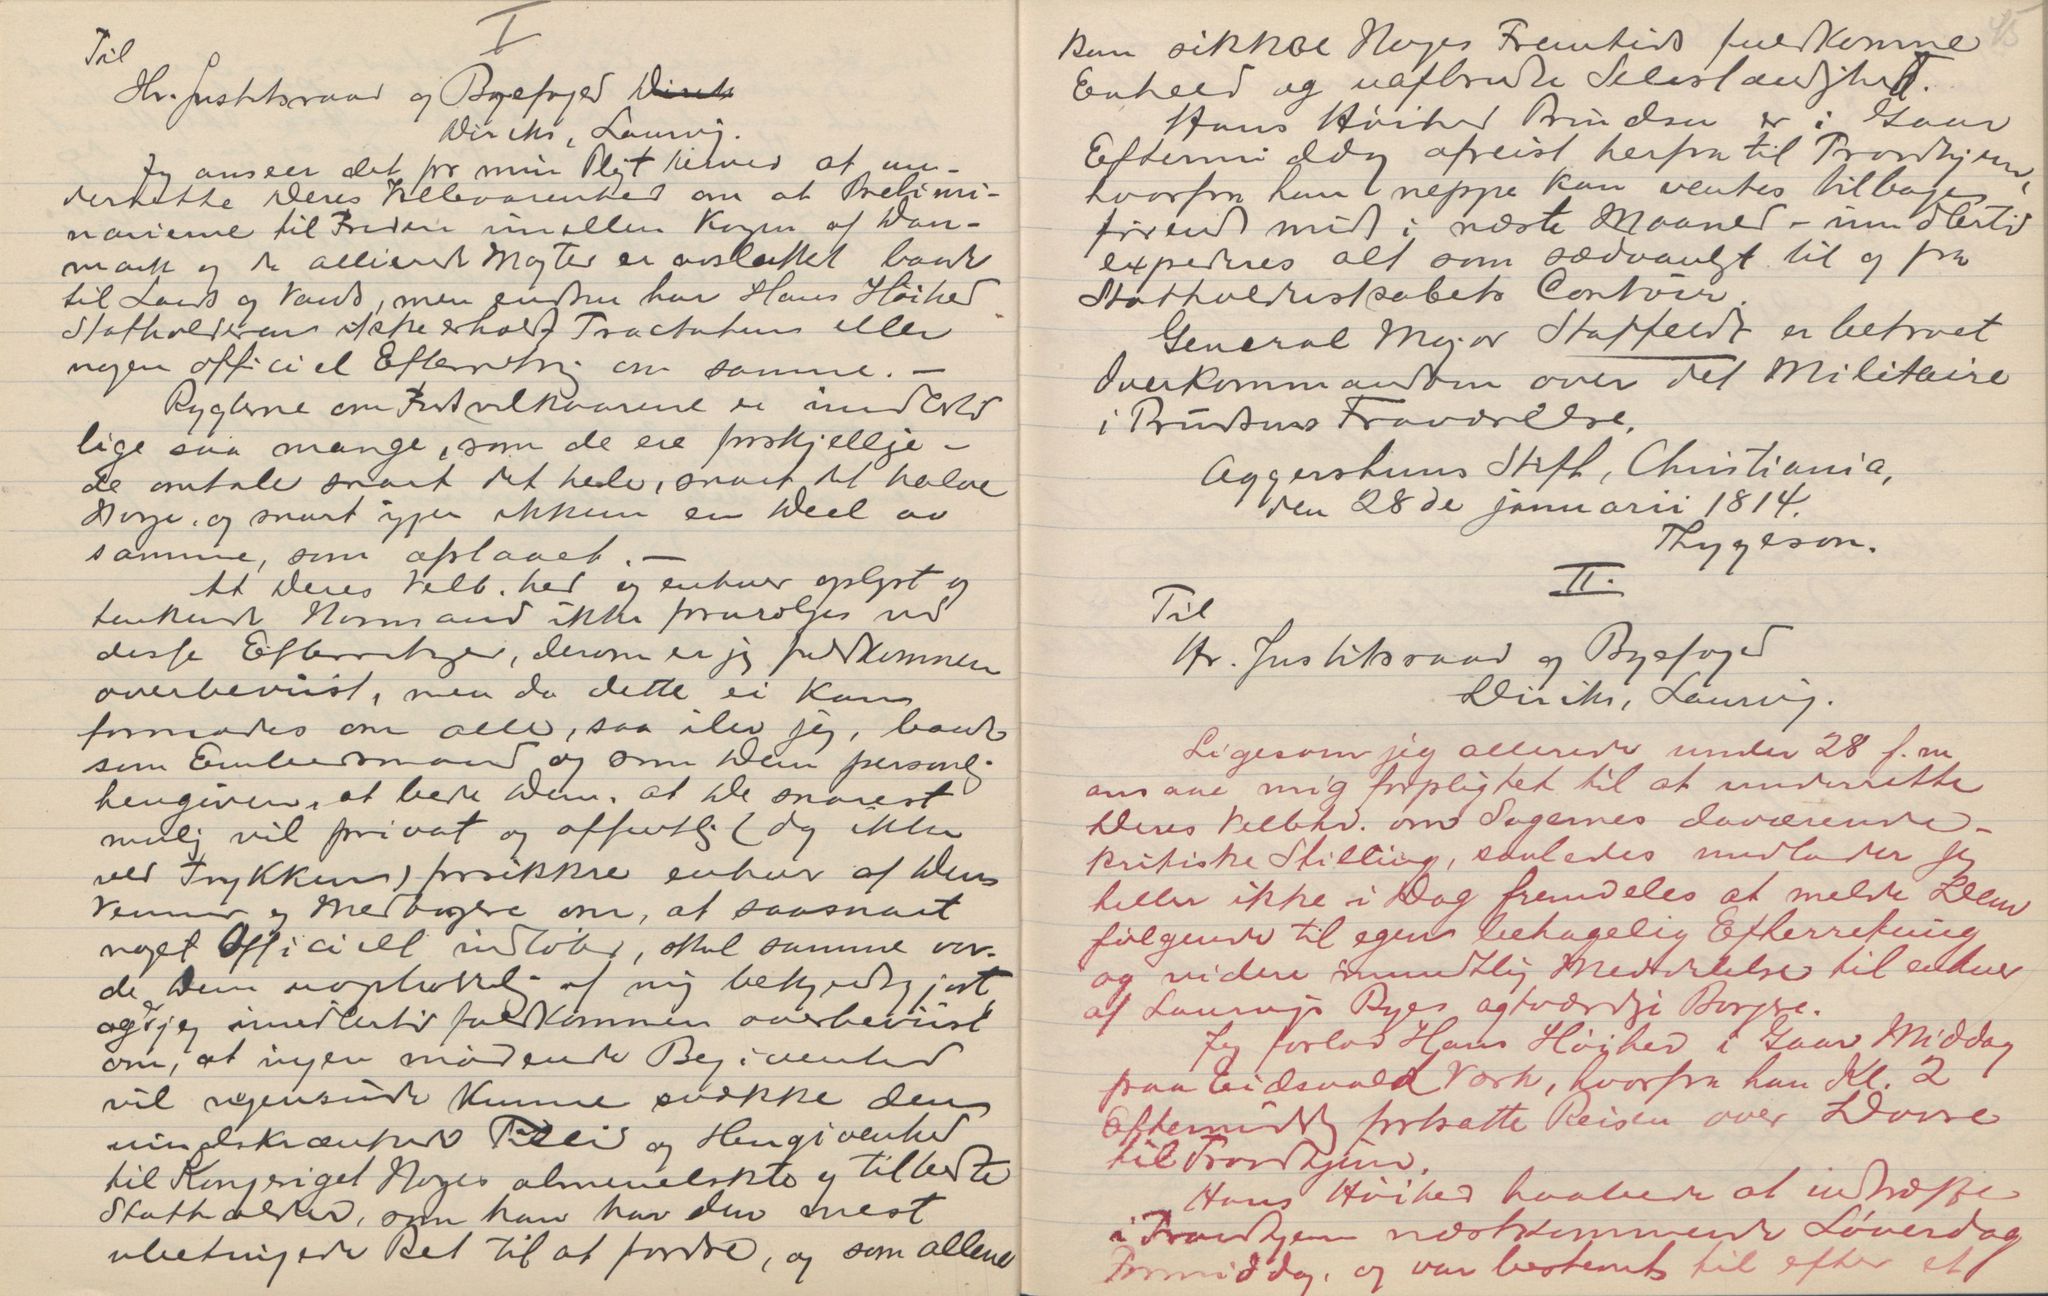 I
Til
Hr. Justitsraad og Byefoged Dirik
Diriks, Laurvig.
Jeg anseer det for min Pligt herved at un-
derrette Deres Velbaarenhed om at Prelimi-
narierne til Freden imellem Kongen af Dan-
mark og de allierede Magter er avsluttet baade
til Lands og Vands, men endnu har Hans Høihed
Statholderen ikke erholdt Tractatens eller
nogen officiel Efterretning om samme. —
Rygterne om Fredsvilkaarene er imidlertid
lige saa mange, som de ere forskjellige —
de omtale snart det hele, snart det halve
Norge, og snart igjen ikkun en Deel av
samme, som afstaaet. —
At Deres Velb.hed og enhver oplyst og
tenkende Normand ikke foruroliges ved
disse Efterretninger, derom er jeg fuldkommen
overbeviist, men da dette ei kan
formodes om alle, saa iler jeg, baade
som Embedsmand og som Dem personlig
hengiven, at bede Dem, at De snarest
mulig vil privat og offentlig (dog ikke
ved Trykken) forsikkre enhver af Deres
Venner og Medborgere om, at saasnart
noget Officielt indløber, skal samme vor-
de Dem uopholdelig af mig bekjendtgjort
og er jeg imidlertid fuldkommen overbeviist
om, at ingen mødende Begivenhed
vil nogensinde kunne svække den
uindskrænkede Tillid og Hengivenhed
til Kongeriget Norges almenelskte og tilbedte
Statholder, som han har den mest
ubetingede Ret til at fordre, og som allene
45
kan sikkre Norges Fremtids fuldkomne
Enheed og uafbrudte Selvstændighed.
Hans Høihed Prindsen er i Gaar
Eftermiddag afreist herfra til Trondhjem,
hvorfra han neppe kan ventes tilbage
førend midt i næste Maaned – imidlertid
expederes alt som sædvanligt til og fra
Statholderskabets Contoir.
General Major Staffeldt er betroet
Overkommandoen over det Militaire
i Prindsens Fraværelse.
Aggershuus Stift, Christiania,
den 28de januarii 1814.
Thygeson.
II.
Til
Hr. Justitsraad og Byefoged
Diriks, Laurvig.
Ligesom jeg allerede under 28 f.m
ansaae mig forpligtet til at underrette
Deres Velbhd. om Sagernes daværende
kritiske Stilling, saaledes undlader jeg
heller ikke i Dag fremdeles at melde Dem
følgende til egen behagelig Efterretning
og videre mundtlig Meddelelse til enhver
af Laurvigs Byes agtværdige Borgere.
Jeg forlod Hans Høihed i Gaar Middag
paa Eidsvold Værk, hvorfra han Kl. 2
Eftermiddag fortsatte Reisen over Dovre
til Trondhjem.
Hans Høihed haabede at indtræffe
i Trondhjem næstkommende Løverdag
Formiddag, og var bestemt til efter et